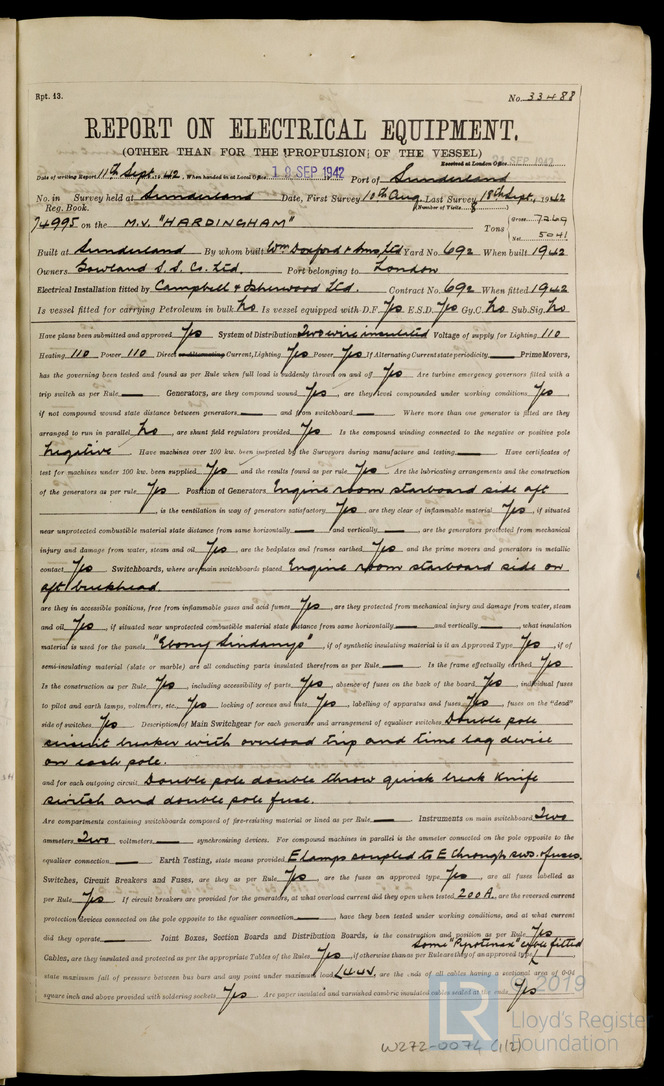 Rpt. 13.
No. 33488
REPORT ON ELECTRICAL EQUIPMENT.
(OTHER THAN FOR THE PROPULSION OF THE VESSEL)
Received at London Office 21 SEP 1942
Date of writing Report 11th Sept. 1942. When handed in at Local Office 18 SEP 1942 Port of Sunderland
No. in Survey held at Sunderland Date, First Survey 10th Aug. Last Survey 18th Sept., 1942
Reg. Book. (Number of Visits 8)
74995 on the M.V. "HARDINGHAM" Tons Gross 7269
Net 5041
Built at Sunderland By whom built Wm Doxford & Sons Ltd Yard No. 692 When built 1942
Owners Gowland S.S. Co. Ltd. Port belonging to London
Electrical Installation fitted by Campbell & Isherwood Ltd. Contract No. 692 When fitted 1942
Is vessel fitted for carrying Petroleum in bulk No Is vessel equipped with D.F. Yes E.S.D. Yes Gy.C. No Sub.Sig. No
Have plans been submitted and approved Yes System of Distribution Two wire insulated Voltage of supply for Lighting 110
Heating 110 Power 110 Direct or Alternating Current, Lighting Yes Power Yes If Alternating Current state periodicity Prime Movers,
has the governing been tested and found as per Rule when full load is suddenly thrown on and off Yes Are turbine emergency governors fitted with a
trip switch as per Rule Generators, are they compound wound Yes, are they level compounded under working conditions Yes,
if not compound wound state distance between generators and from switchboard Where more than one generator is fitted are they
arranged to run in parallel No, are shunt field regulators provided Yes Is the compound winding connected to the negative or positive pole
Negative Have machines over 100 kw. been inspected by the Surveyors during manufacture and testing Have certificates of
test for machines under 100 kw. been supplied Yes and the results found as per rule Yes Are the lubricating arrangements and the construction
of the generators as per rule Yes Position of Generators Engine room starboard side aft
, is the ventilation in way of generators satisfactory Yes, are they clear of inflammable material Yes, if situated
near unprotected combustible material state distance from same horizontally and vertically, are the generators protected from mechanical
injury and damage from water, steam and oil Yes, are the bedplates and frames earthed Yes and the prime movers and generators in metallic
contact Yes Switchboards, where are main switchboards placed Engine room starboard side on
aft bulkhead.
are they in accessible positions, free from inflammable gases and acid fumes Yes, are they protected from mechanical injury and damage from water, steam
and oil Yes, if situated near unprotected combustible material state distance from same horizontally and vertically, what insulation
material is used for the panels "Ebony Sindanyo", if of synthetic insulating material is it an Approved Type Yes, if of
semi-insulating material (slate or marble) are all conducting parts insulated therefrom as per Rule Is the frame effectually earthed Yes
Is the construction as per Rule Yes, including accessibility of parts Yes, absence of fuses on the back of the board Yes, individual fuses
to pilot and earth lamps, voltmeters, etc. Yes locking of screws and nuts Yes, labelling of apparatus and fuses Yes, fuses on the "dead"
side of switches Yes Description of Main Switchgear for each generator and arrangement of equaliser switches Double pole
circuit breaker with overload trip and time lag device
on each pole.
and for each outgoing circuit Double pole double throw quick break knife
switch and double pole fuse.
Are compartments containing switchboards composed of fire-resisting material or lined as per Rule Instruments on main switchboard Two
ammeters Two voltmeters synchronising devices. For compound machines in parallel is the ammeter connected on the pole opposite to the
equaliser connection Earth Testing, state means provided E lamps coupled to E through sws. & fuses.
Switches, Circuit Breakers and Fuses, are they as per Rule Yes, are the fuses an approved type Yes, are all fuses labelled as
per Rule Yes If circuit breakers are provided for the generators, at what overload current did they open when tested 200 A., are the reversed current
protection devices connected on the pole opposite to the equaliser connection, have they been tested under working conditions, and at what current
did they operate Joint Boxes, Section Boards and Distribution Boards, is the construction and position as per Rule Yes
some "Pyrotenax" cable fitted
Cables, are they insulated and protected as per the appropriate Tables of the Rules Yes, if otherwise than as per Rule are they of an approved type
state maximum fall of pressure between bus bars and any point under maximum load 4.4 V., are the ends of all cables having a sectional area of 0·04
square inch and above provided with soldering sockets Yes Are paper insulated and varnished cambric insulated cables sealed at the ends Yes
© 2019
LR
Lloyd's Register
Foundation
W272-0074 (1/2)